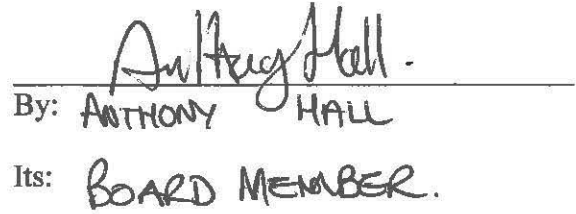 Anthony Hall.
By: ANTHONY HALL
Its: BOARD MEMBER.